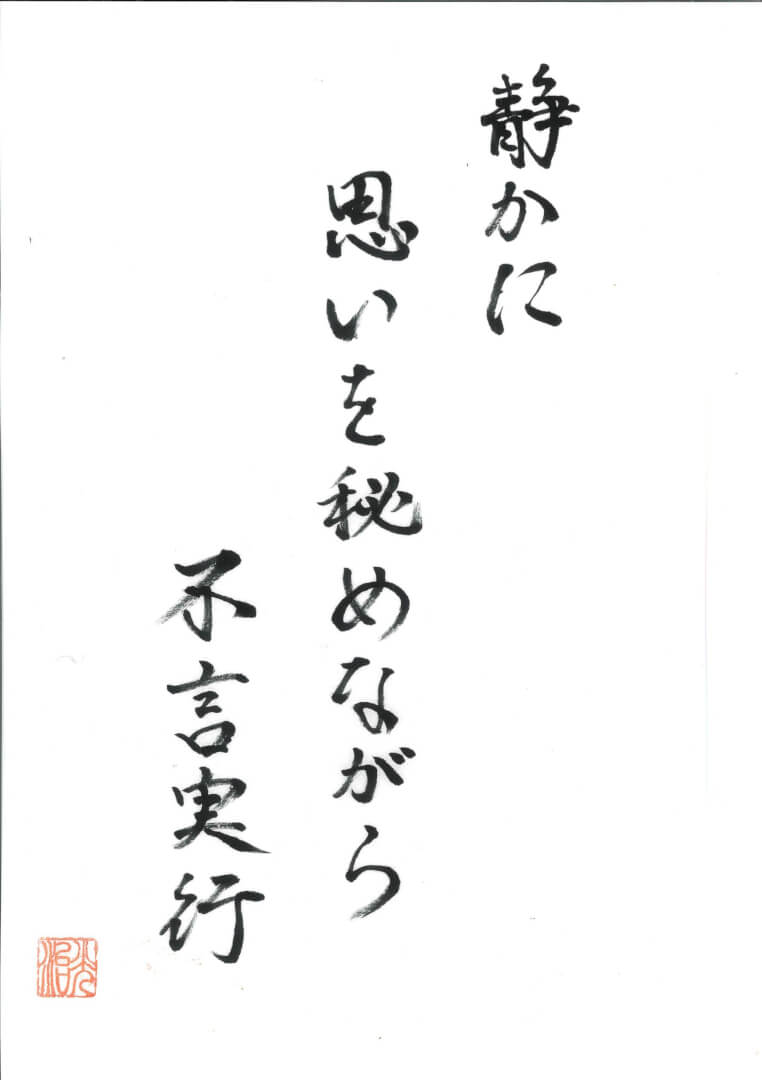 静かに
思いを秘めながら
不言実行